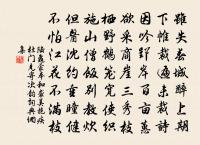 雖失春城醉上期
下帷裁遍未裁詩
因吟郢岸百畝蕙
欲采商崖三秀芝
棲野鶴籠寬使織
施山僧飯別教炊
但醫沈約重瞳健
不怕江花不滿枝
陸龜蒙奉和襲美抱疾
杜門見寄次韻詞典網
集